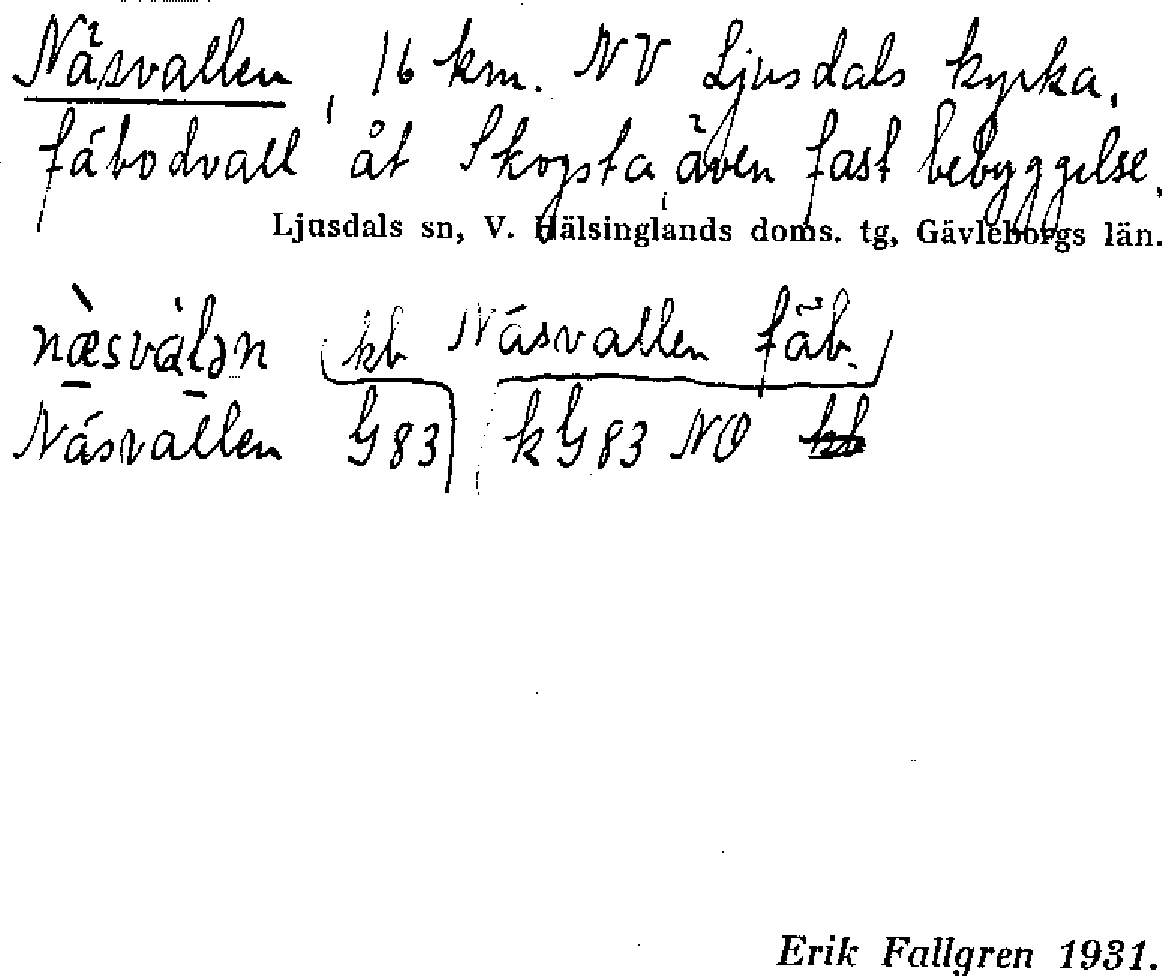 Näsvallen, 16 km. NV Ljusdals kyrka,
fäbodvall åt Skogsta, även fast bebyggelse.
Ljusdals sn, V. Hälsinglands doms. tg, Gävleborgs län.
næsvàlən kb Näsvallen fäb.
Näsvallen G83 k G83 NO
Erik Fallgren 1931.